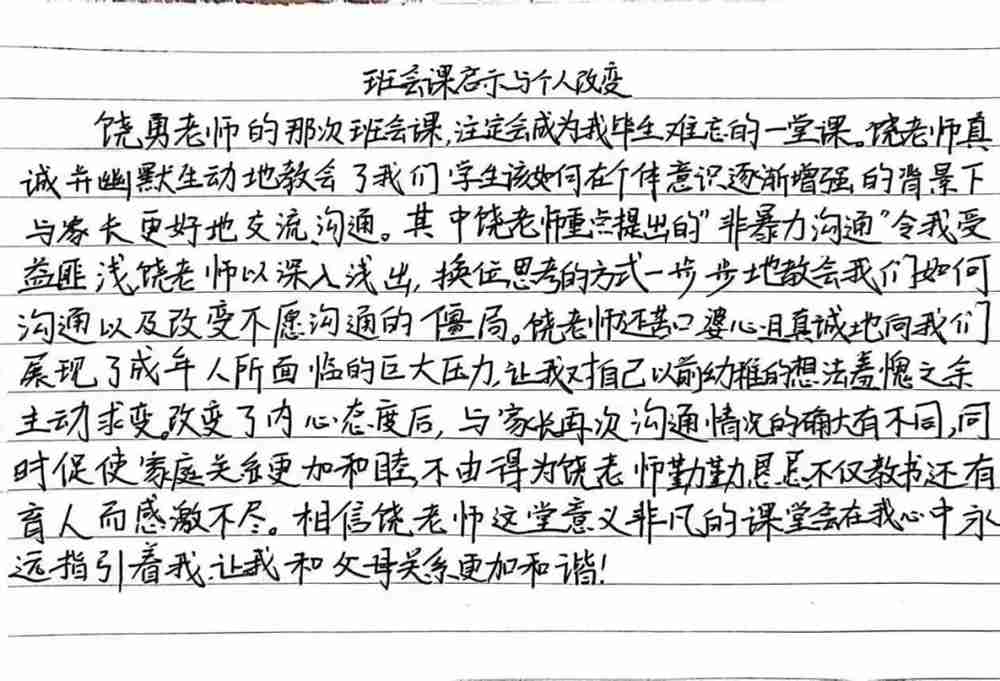 班会课启示与个人改变
饶勇老师的那次班会课,注定会成为我毕生难忘的一堂课。饶老师真
诚并幽默生动地教会了我们学生该如何在个体意识逐渐增强的背景下
与家长更好地交流沟通。其中饶老师重点提出的"非暴力沟通"令我受
益匪浅,饶老师以深入浅出,换位思考的方式一步步地教会我们如何
沟通以及改变不愿沟通的僵局。饶老师还苦口婆心且真诚地向我们
展现了成年人所面临的巨大压力,让我对自己以前幼稚的想法羞愧之余
主动求变。改变了内心态度后,与家长再次沟通情况的确大有不同,同
时促使家庭关系更加和睦,不由得为饶老师勤勤恳恳不仅教书还有
育人而感激不尽。相信饶老师这堂意义非凡的课堂会在我心中永
远指引着我,让我和父母关系更加和谐!